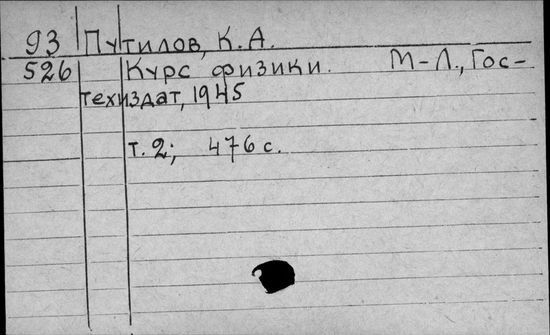 93 Путилов, К.А.
526 Курс физики. М-Л., Гос-
техиздат, 1945
т. 2; 476 с.